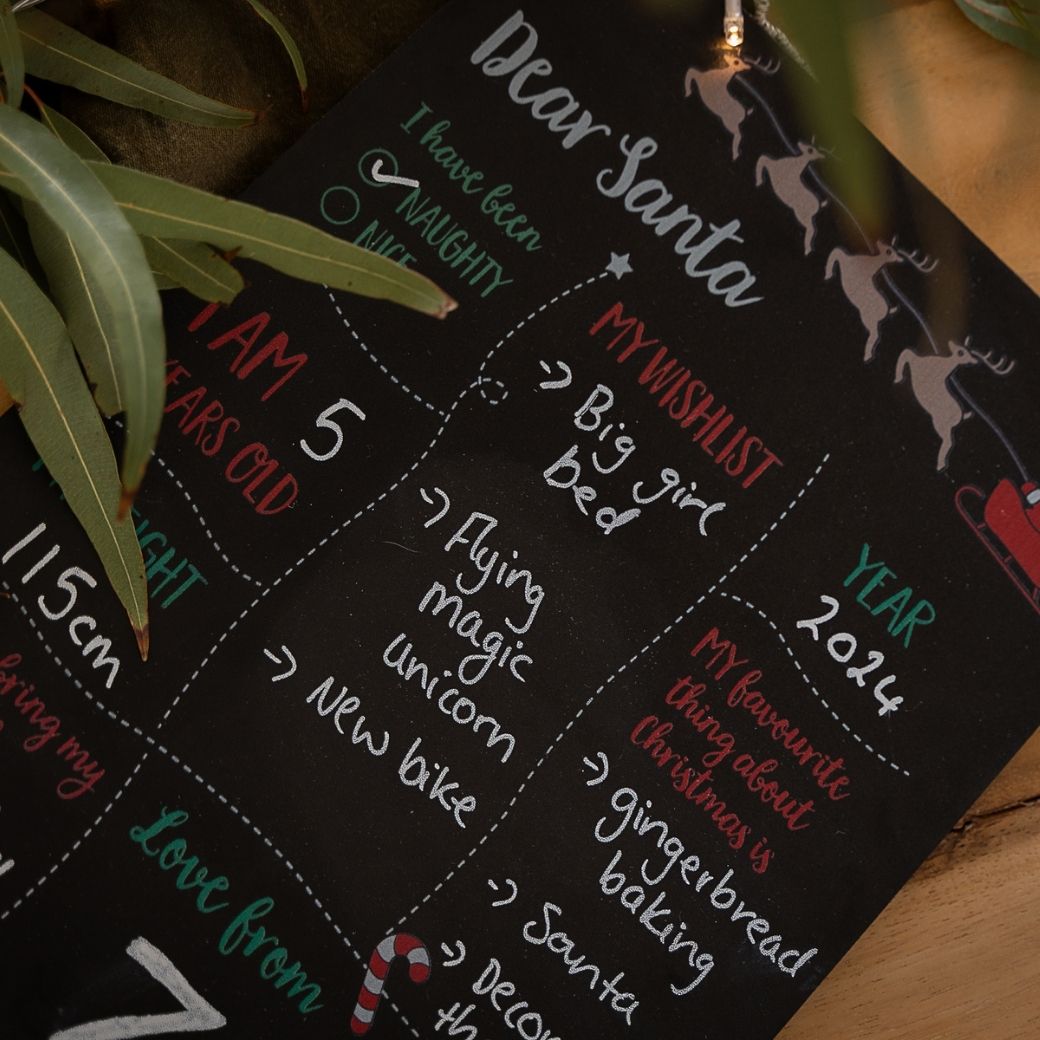 Dear Santa
I have been
NAUGHTY
NICE
I AM
5
YEARS OLD
115cm
bring my
MY WISHLIST
-> Big girl
bed
-> Flying
magic
unicorn
-> New bike
YEAR
2024
MY favourite
thing about
Christmas is
-> gingerbread
baking
-> Santa
->
Love from